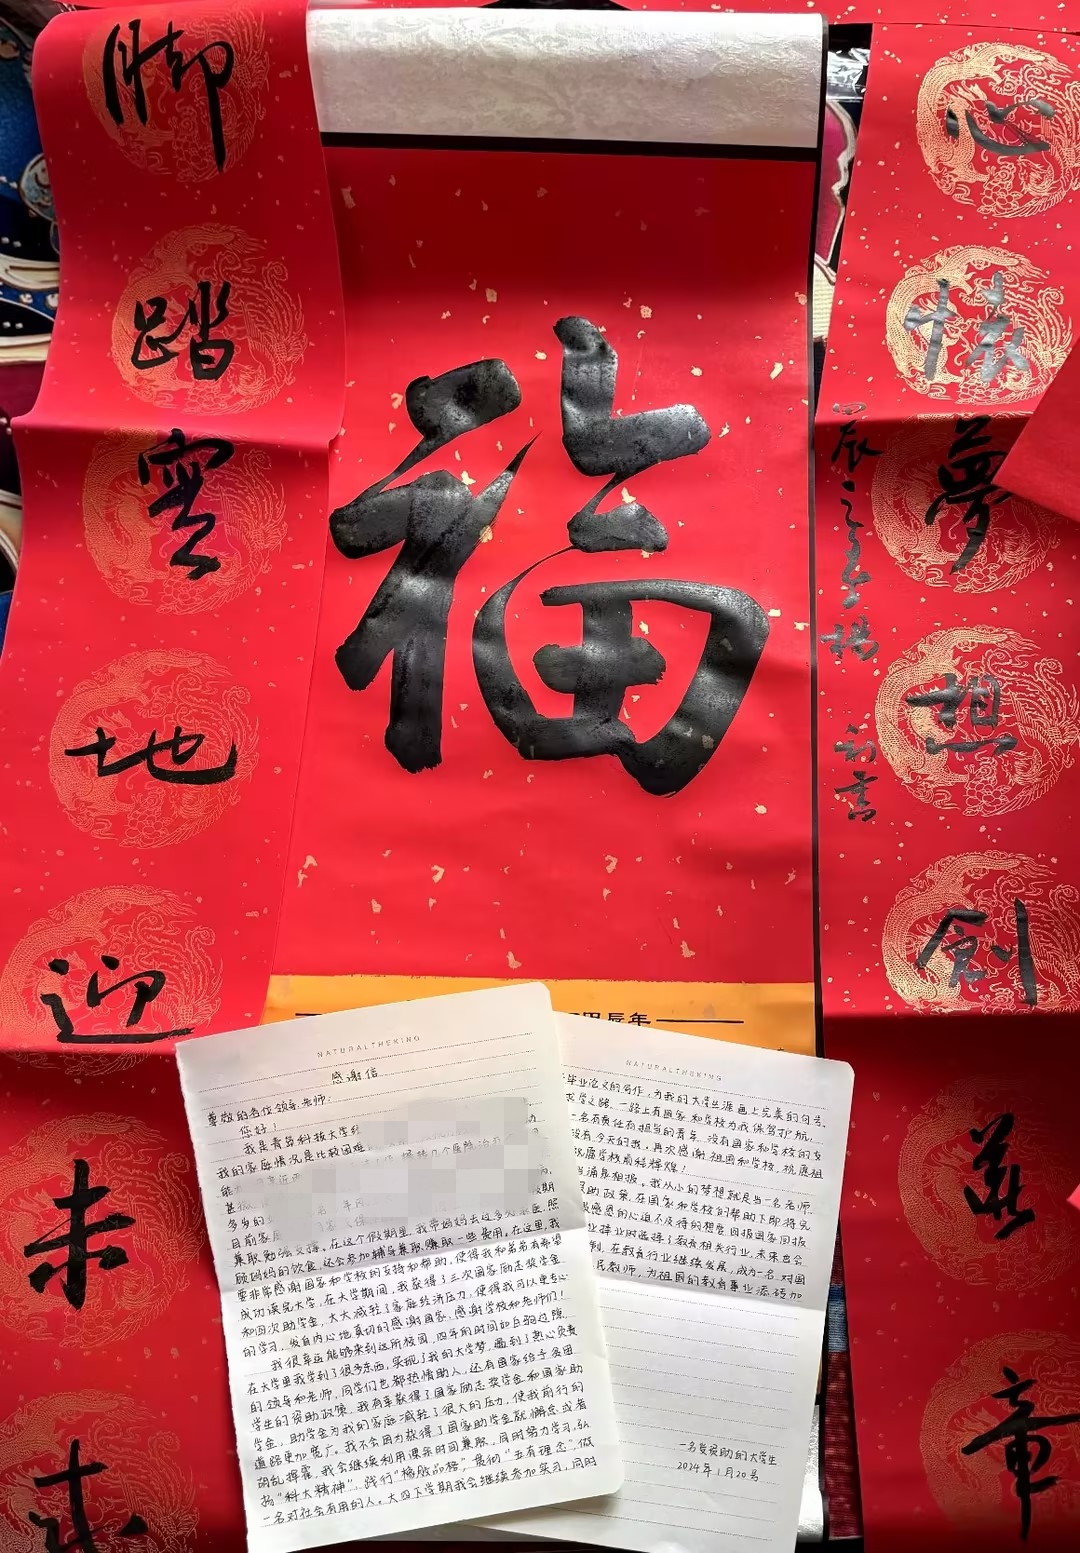 心懷夢想創美章
甲辰之春楊
利書
福
脚踏實地迎未来
甲辰年
NATURALTHEKING
感谢信
尊敬的各位领导、老师:
您好!
我是青岛科技大学
我的家庭情况是比较困难
目前家庭
兼职勉强支撑。在这个假期里,我带妈妈去过多次医院,照
顾妈妈的饮食,还会参加辅导兼职,赚取一些费用。在这里,我
要非常感谢国家和学校的支持和帮助,使得我和弟弟有希望
成功读完大学。在大学期间,我获得了三次国家励志奖学金
和四次助学金,大大减轻了家庭经济压力,使得我可以更专心
的学习,发自内心地真切的感谢国家,感谢学校和老师们!
我很幸运能够来到这所校园,四年的时间如白驹过隙,
在大学里我学到了很多东西,实现了我的大学梦,遇到了热心负责
的领导和老师,同学们也都热情助人,还有国家给予贫困
学生的资助政策,我有幸获得了国家励志奖学金和国家助
学金,助学金为我的家庭减轻了很大的压力,使我前行的
道路更加宽广。我不会因为获得了国家助学金就懈怠,或者
胡乱挥霍,我会继续利用课余时间兼职,同时努力学习,弘
扬“科大精神”,践行“橡胶品格”,贯彻“三有理念”,做
一名对社会有用的人。大四下学期我会继续参加实习,同时
NATURALTHEKING
毕业论文的写作,为我的大学生涯画上完美的句号。
求学之路,一路上有国家和学校为我保驾护航,
一名有责任有担当的青年,没有国家和学校的支
没有今天的我,再次感谢祖国和学校,祝愿祖
祝愿学校前程辉煌!
当涌泉相报。我从小的梦想就是当一名老师,
资助政策,在国家和学校的帮助下即将完
感恩的心迫不及待的想要回报国家回报
业择业时选择了教育相关行业,未来也会
制,在教育行业继续发展,成为一名对国
民教师,为祖国的教育事业添砖加
一名受资助的大学生
2024年1月20号